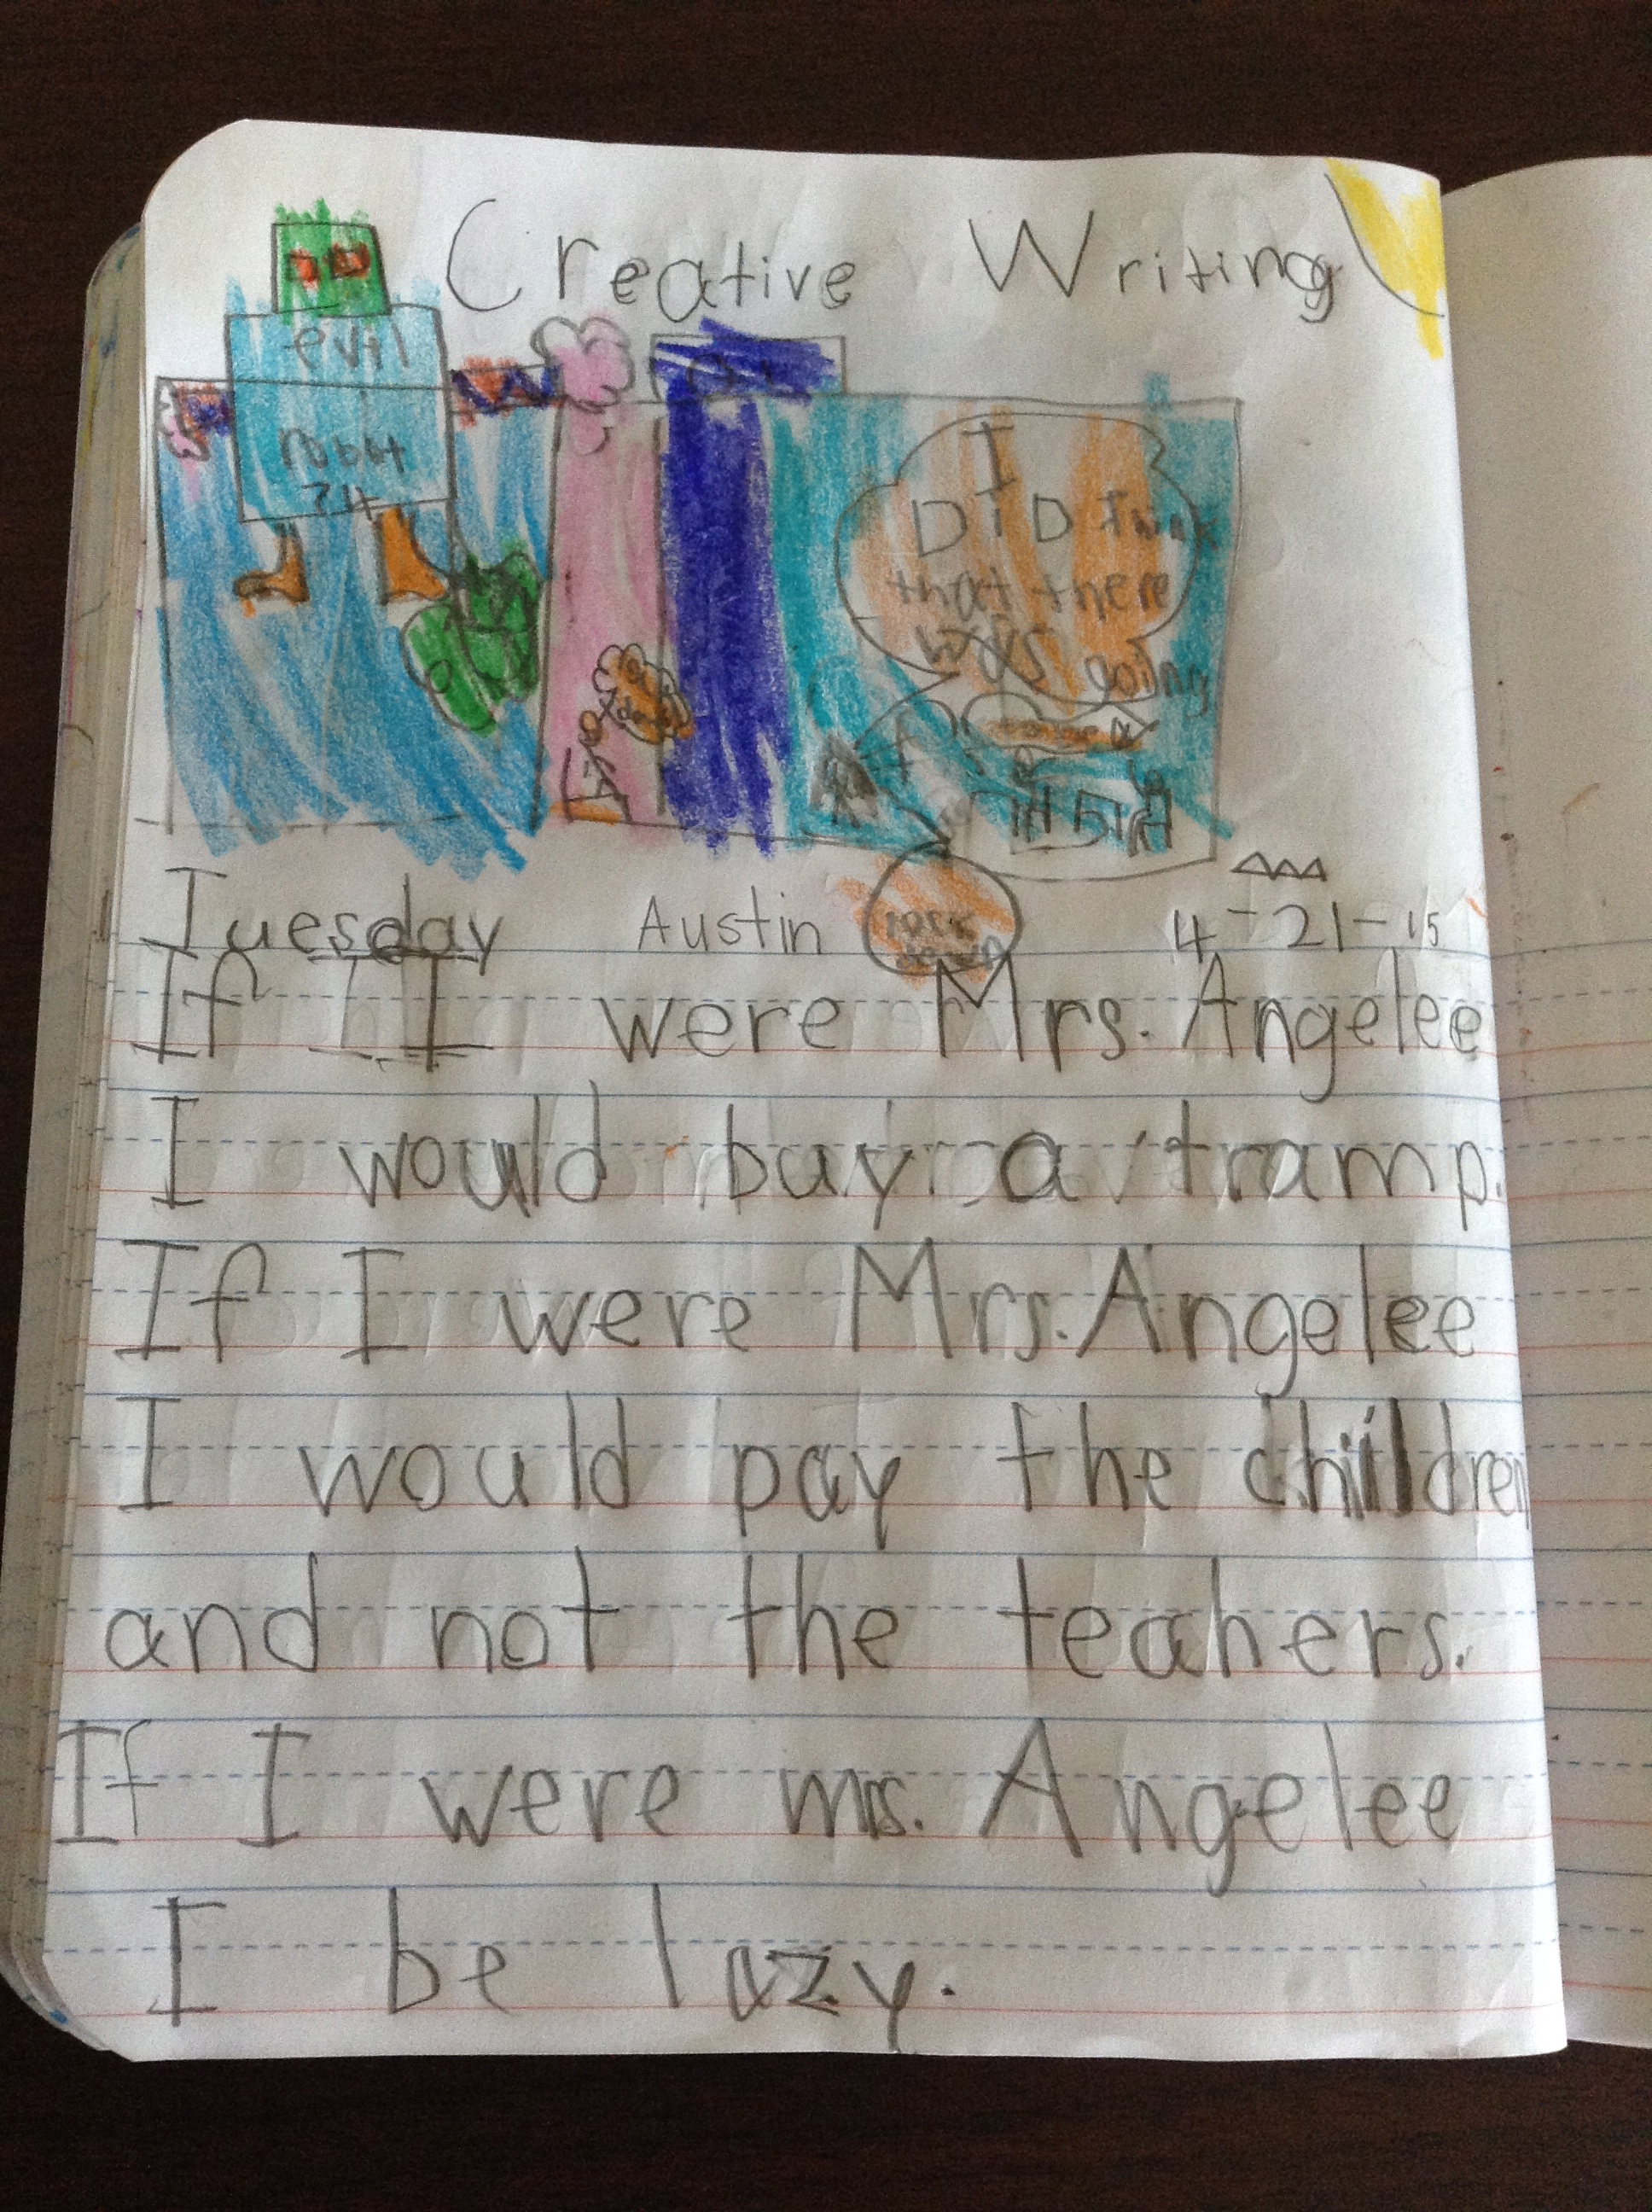 Creative Writing
evil
robot
I
DiD
that there
was going
Tuesday Austin 4-21-15
If I were Mrs. Angelee
I would buy a tramp.
If I were Mrs. Angelee
I would pay the children
and not the teahers.
If I were mrs. Angelee
I be lazy.